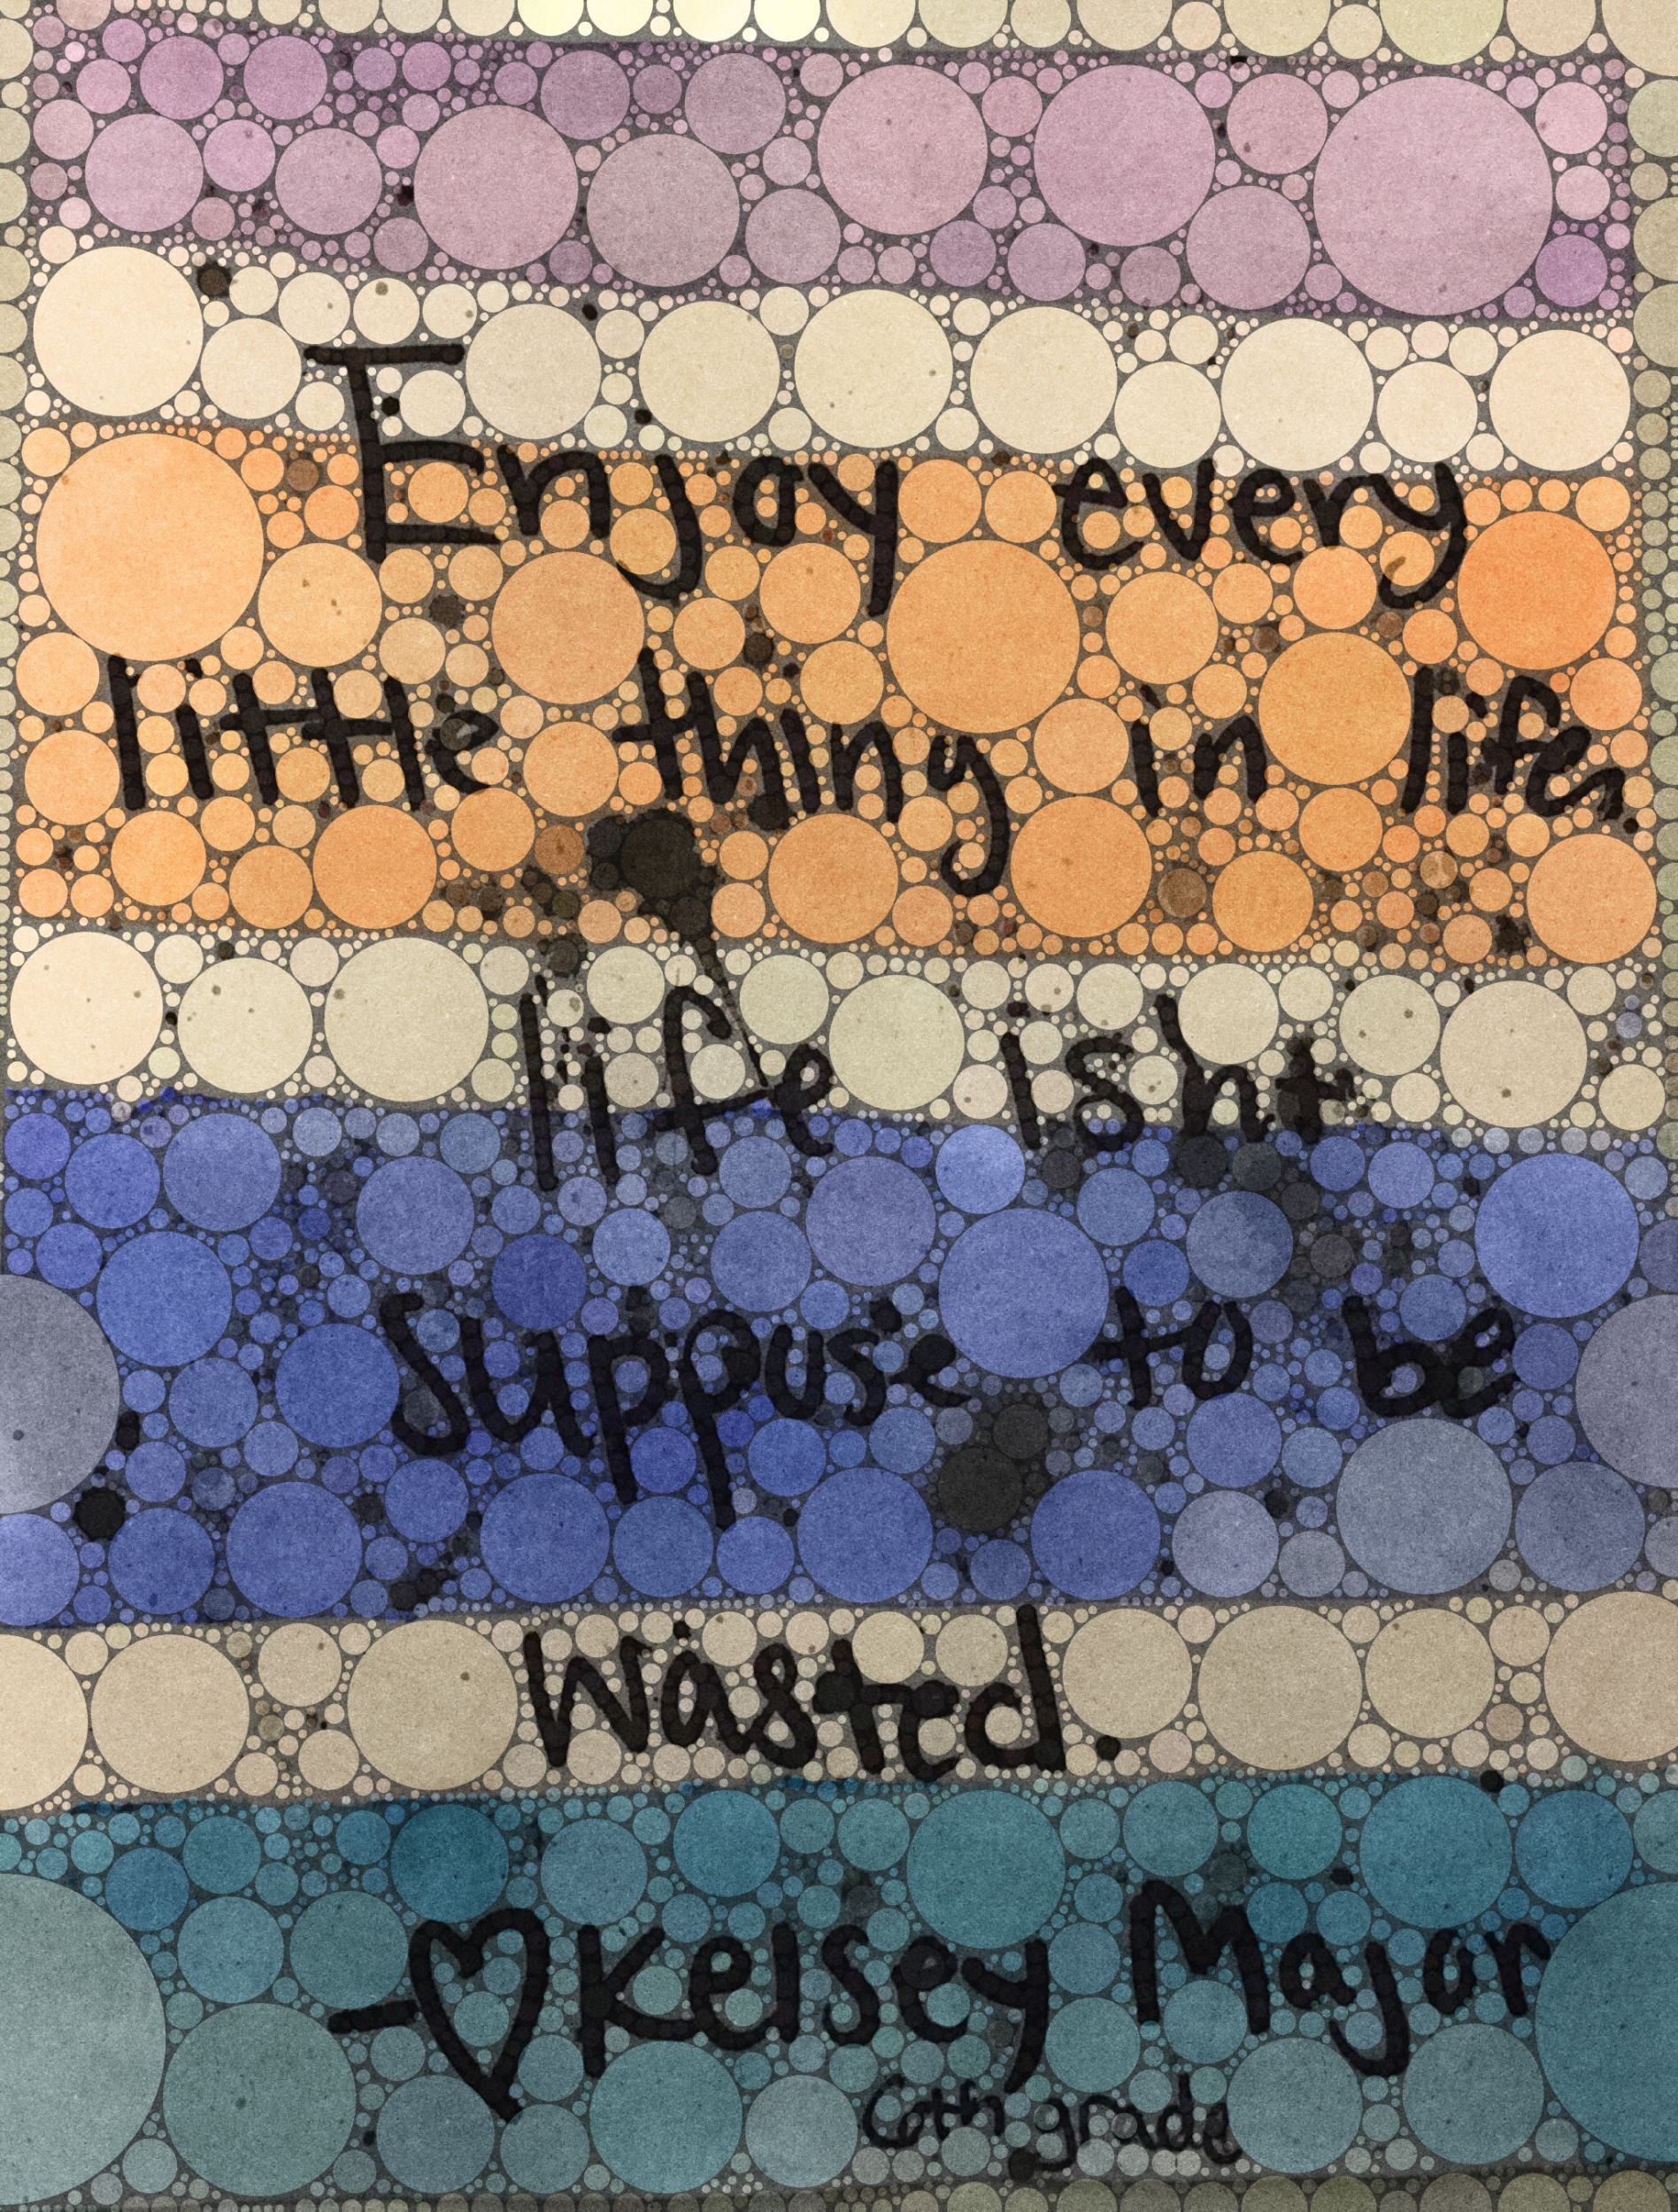 Enjoy every
little thing in life,
life isnt
suppose to be
wasted.
-♡ Kelsey Major
6th grade